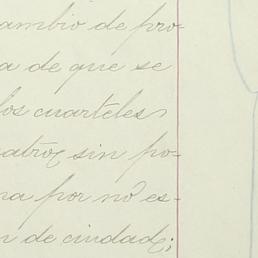 ambio de pro-
a de que se
los cuarteles
uatro, sin po-
na por no es-
n de ciudad;